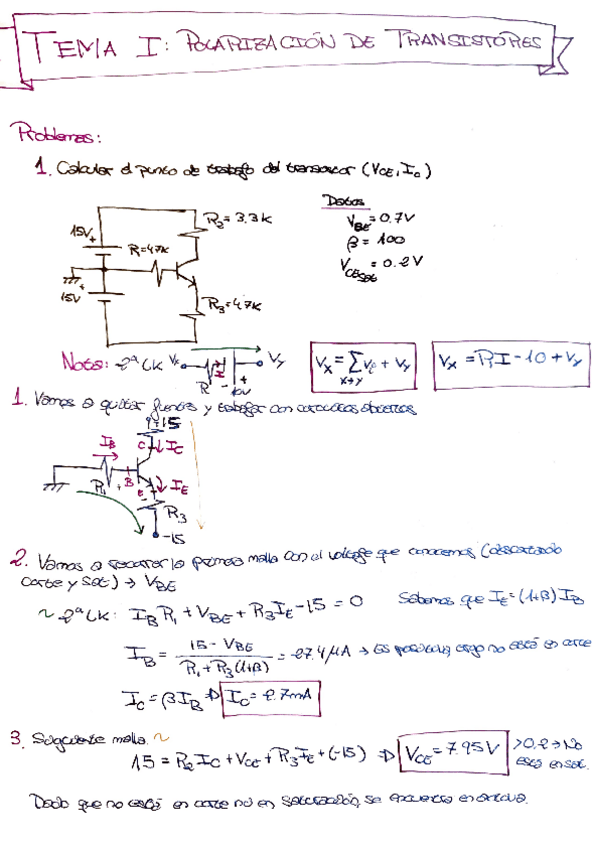 TEMA I: POLARIZACIÓN DE TRANSISTORES
Problemas:
1. Calcular el punto de trabajo del transistor (VCE, Ic)
Datos
VBE = 0.7V
β = 100
VCEsat = 0.2V
R2 = 3.3K
15V
+
R1 = 47K
+
15V
R3 = 4.7K
Nota: 2ª LK
Vx
Vy
R
I
+
10V
Vx = Σ Vi + Vy
x→y
Vx = RI - 10 + Vy
1. Vamos a quitar fuentes y trabajar con circuitos abiertos
+15
IB
C
IC
R1
+
B
E
IE
R3
-15
2. Vamos a recorrer la primera malla con el voltaje que conocemos (descartando
corte y sat) → VBE
~ 2ª LK: IB R1 + VBE + R3 IE - 15 = 0
Sabemos que IE = (1+β) IB
IB = 15 - VBE / R1 + R3(1+β) = 27.4 μA → Es positivo, luego no está en corte
IC = β IB ⇒ IC = 2.7mA
3. Siguiente malla ~
15 = R2 IC + VCE + R3 IE + (-15) ⇒ VCE = 7.95 V
> 0.2 → No
está en sat.
Dado que no está en corte ni en saturación, se encuentra en activa.